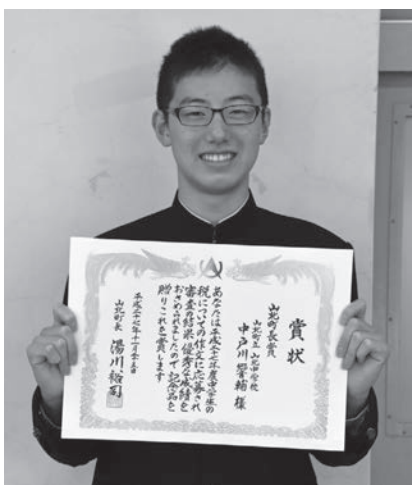 賞状
山北町長賞
山北町立 山北中学校
中戸川 響輔 様
あなたは平成二十七年度中学生の
税についての作文に応募され
審査の結果優秀な成績を
おさめられましたので記念品を
贈りこれを賞します
山北町長 湯川裕司